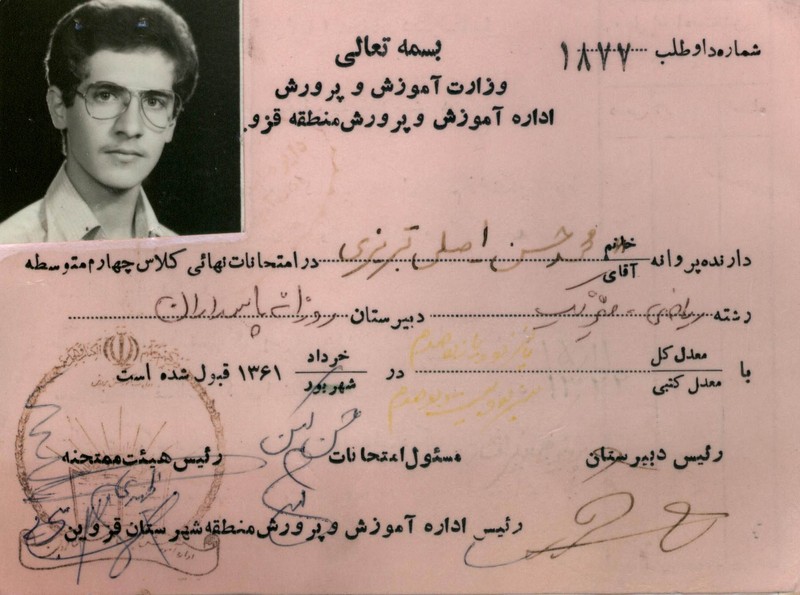 شماره داوطلب ۱۸۷۷
بسمه تعالی
وزارت آموزش و پرورش
اداره آموزش و پرورش منطقه قزو
دارنده پروانه خانم آقای محمد حسن اصلی تبریزی در امتحانات نهائی کلاس چهارم متوسطه
رشته ریاضی - فیزیک دبیرستان روزانه پاسداران
با معدل کل معدل کتبی در خرداد شهریور ۱۳۶۱ قبول شده است
رئیس دبیرستان مسئول امتحانات رئیس هیئت ممتحنه
رئیس اداره آموزش و پرورش منطقه شهرستان قزوین